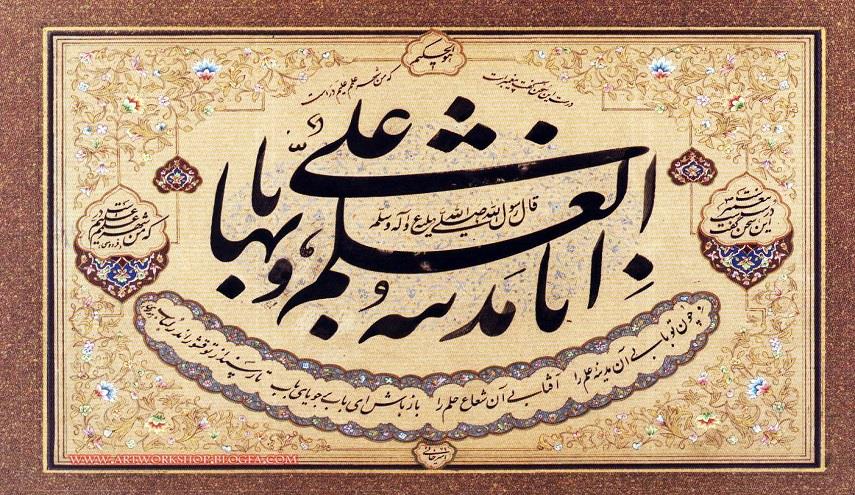 هو الحکیم
درست این سخن گفت پیغمبرست
که من شهر علمم علیم در است
انا مدینة العلم و علی بابها
قال رسول الله صلی الله علیه و آله و سلم
درست این سخن گفت پیغمبرست
که من شهر علمم علیم در است
(فردوسی)
چون تو بابی آن مدینهٔ علم را
آفتابی آن شعاع حلم را
باز باش ای باب جویای باب
تا رسند از تو قشور اندر لباب
WWW.ARTWORKSHOP.BLOGFA.COM